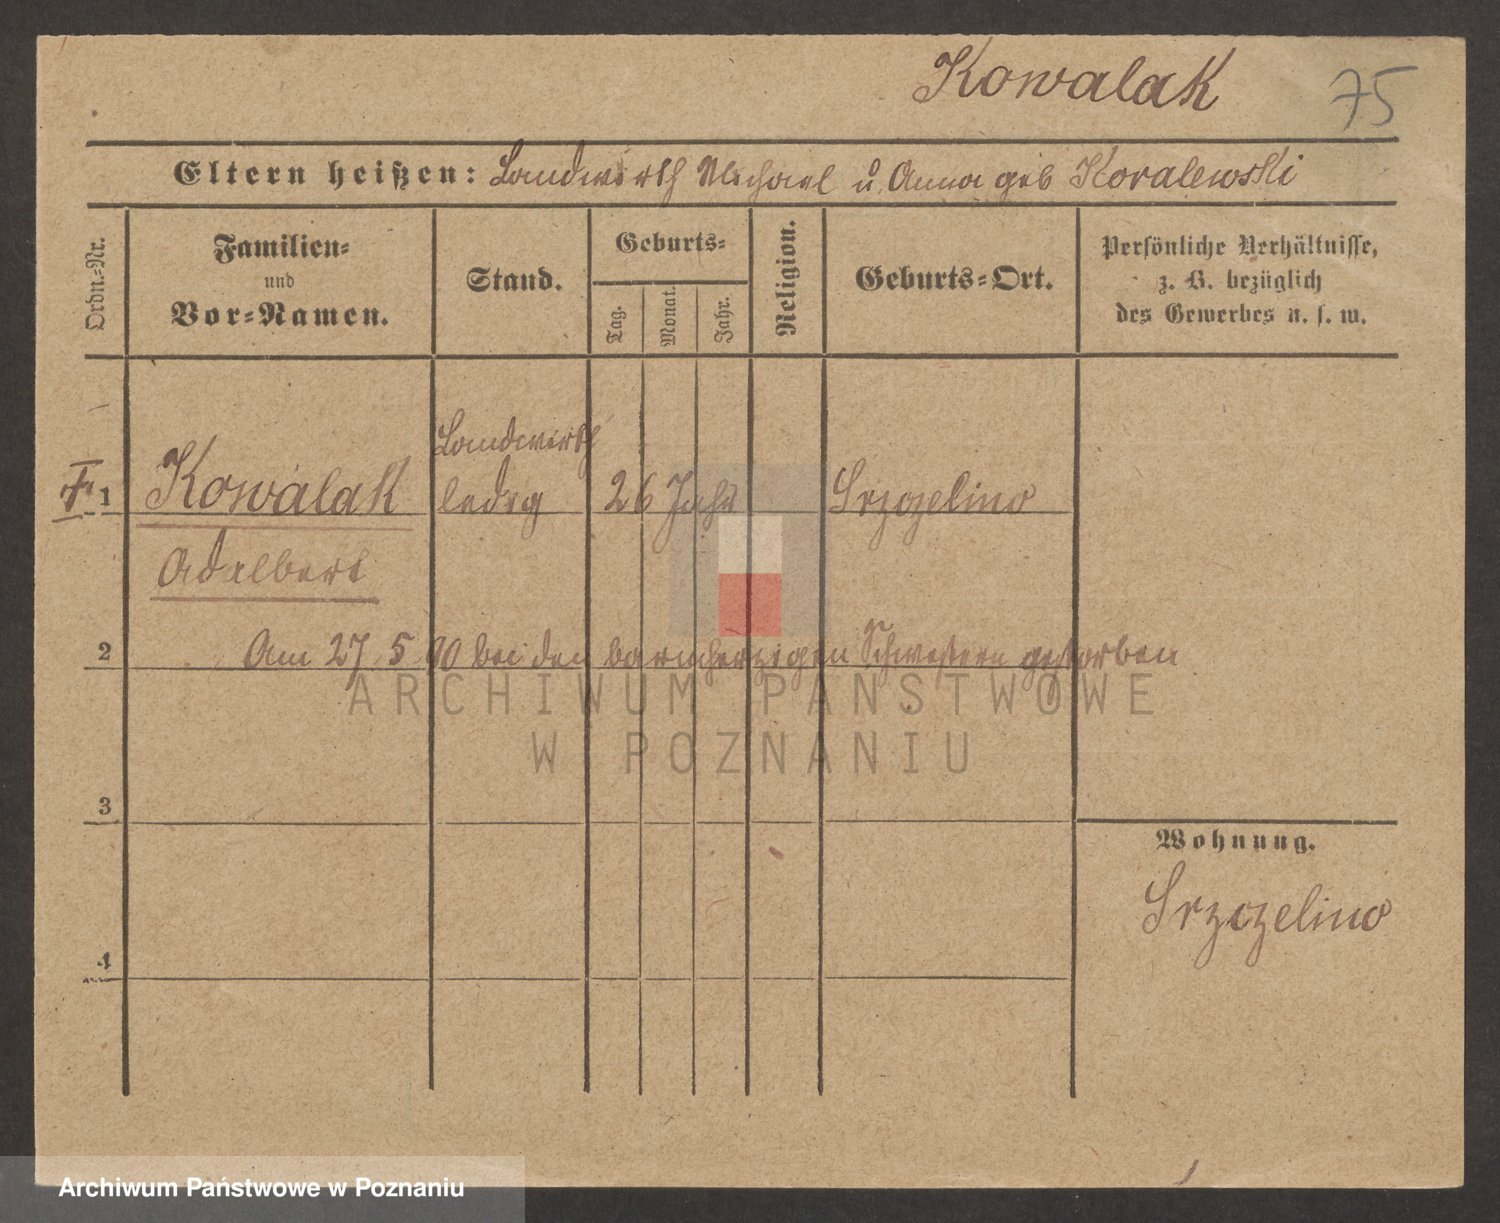 Kowalak 75
Eltern heißen: Landwirth Michael u. Anna geb Koralewski
Ordn.-Nr.
Familien-
und
Vor-Namen.
Stand.
Geburts-
Tag.
Monat.
Jahr.
Religion.
Geburts-Ort.
Persönliche Verhältnisse,
z. B. bezüglich
des Gewerbes u. s. w.
Landwirth
1 Kowalak ledig 26 Jahr Srzozelino
Adalbert
2 Am 27 5 90 bei den barmherzigen Schwestern gestorben
ARCHIWUM PAŃSTWOWE
W POZNANIU
3
Wohnung.
Srzozelino
4
Archiwum Państwowe w Poznaniu